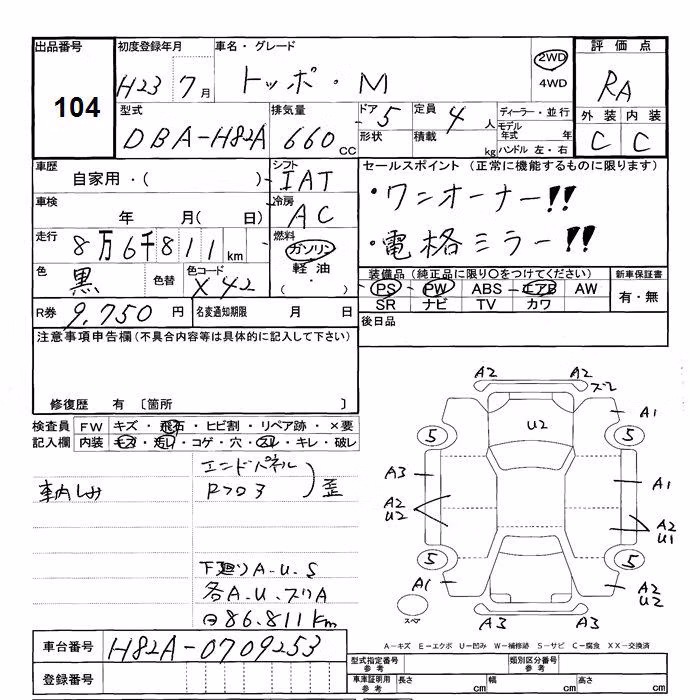 出品番号 初度登録年月 車名・グレード 評価点
104 H23 7月 トッポ・M 2WD 4WD RA
外装 内装
C C
型式 排気量 ドア 5 定員 4人 ディーラー・並行
DBA-H82A 660cc 形状 積載 kg モデル年式 年
ハンドル 左・右
車歴 シフト セールスポイント (正常に機能するものに限ります)
自家用・( ) IAT ・ワンオーナー!!
車検 冷房
年 月( 日) AC ・電格ミラー!!
走行 燃料
8万6千811km ガソリン
色 色替 色コード 軽油・( )
黒 X42
装備品(純正品に限り○をつけてください) 新車保証書
PS PW ABS エアB AW 有・無
SR ナビ TV カワ
R券 9,750円 名変通知期限 月 日 後日品
注意事項申告欄(不具合内容等は具体的に記入して下さい)
修復歴 有 〔箇所 〕
検査員 FW キズ・飛石・ヒビ割・リペア跡・×要
記入欄 内装 キズ・汚れ・コゲ・穴・スレ・キレ・破レ
エンドパネル
車内しみ Rフロ3 歪
下廻りA.U.S
各A.U.スリA
86.811km
A2 A2 スリ
A1
5 U2 5
A3 A1
A2 U2 A2 U1
5 5
A1 A2 U2
スペア A3 A3
車台番号 H82A-0709253
A-キズ E-エクボ U-凹み W-補修跡 S-サビ C-腐食 XX-交換済
登録番号
型式指定番号 参考 類別区分番号 参考
車庫証明用 参考 長さ cm 幅 cm 高さ cm